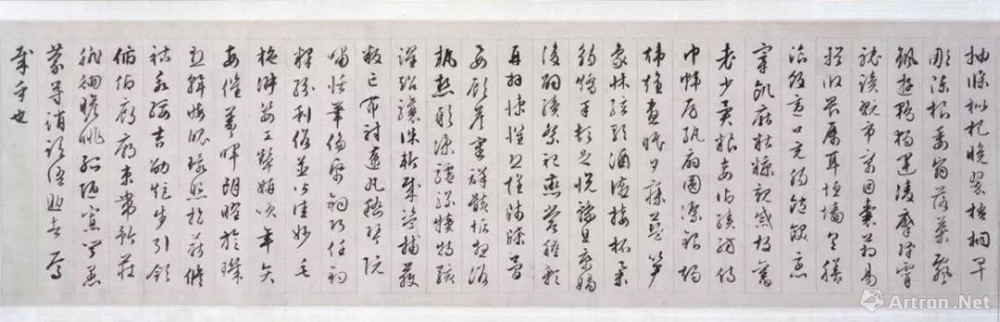 抽條枇杷晚翠梧桐早
彫陳根委翳落葉飄
颻遊鵾獨運凌摩絳霄
耽讀翫市寓目囊箱易
輶攸畏屬耳垣牆具膳
飡飯適口充腸飽飫烹
宰飢厭糟糠親戚故舊
老少異糧妾御績紡侍
巾帷房紈扇圓潔銀燭
煒煌晝眠夕寐藍笋
象牀弦歌酒讌接杯舉
觴矯手頓足悅豫且康嫡
後嗣續祭祀烝嘗稽顙
再拜悚懼恐惶牋牒簡
要顧答審詳骸垢想浴
執熱願涼驢騾犢特駭
躍超驤誅斬賊盜捕獲
叛亡布射遼丸嵇琴阮
嘯恬筆倫紙鈞巧任釣
釋紛利俗並皆佳妙毛
施淑姿工顰妍笑年矢
每催曦暉朗曜旋璣
懸斡晦魄環照指薪修
祜永綏吉劭矩步引領
俯仰廊廟束帶矜莊
徘徊瞻眺孤陋寡聞愚
蒙等誚謂語助者焉
哉乎也
Artron.Net